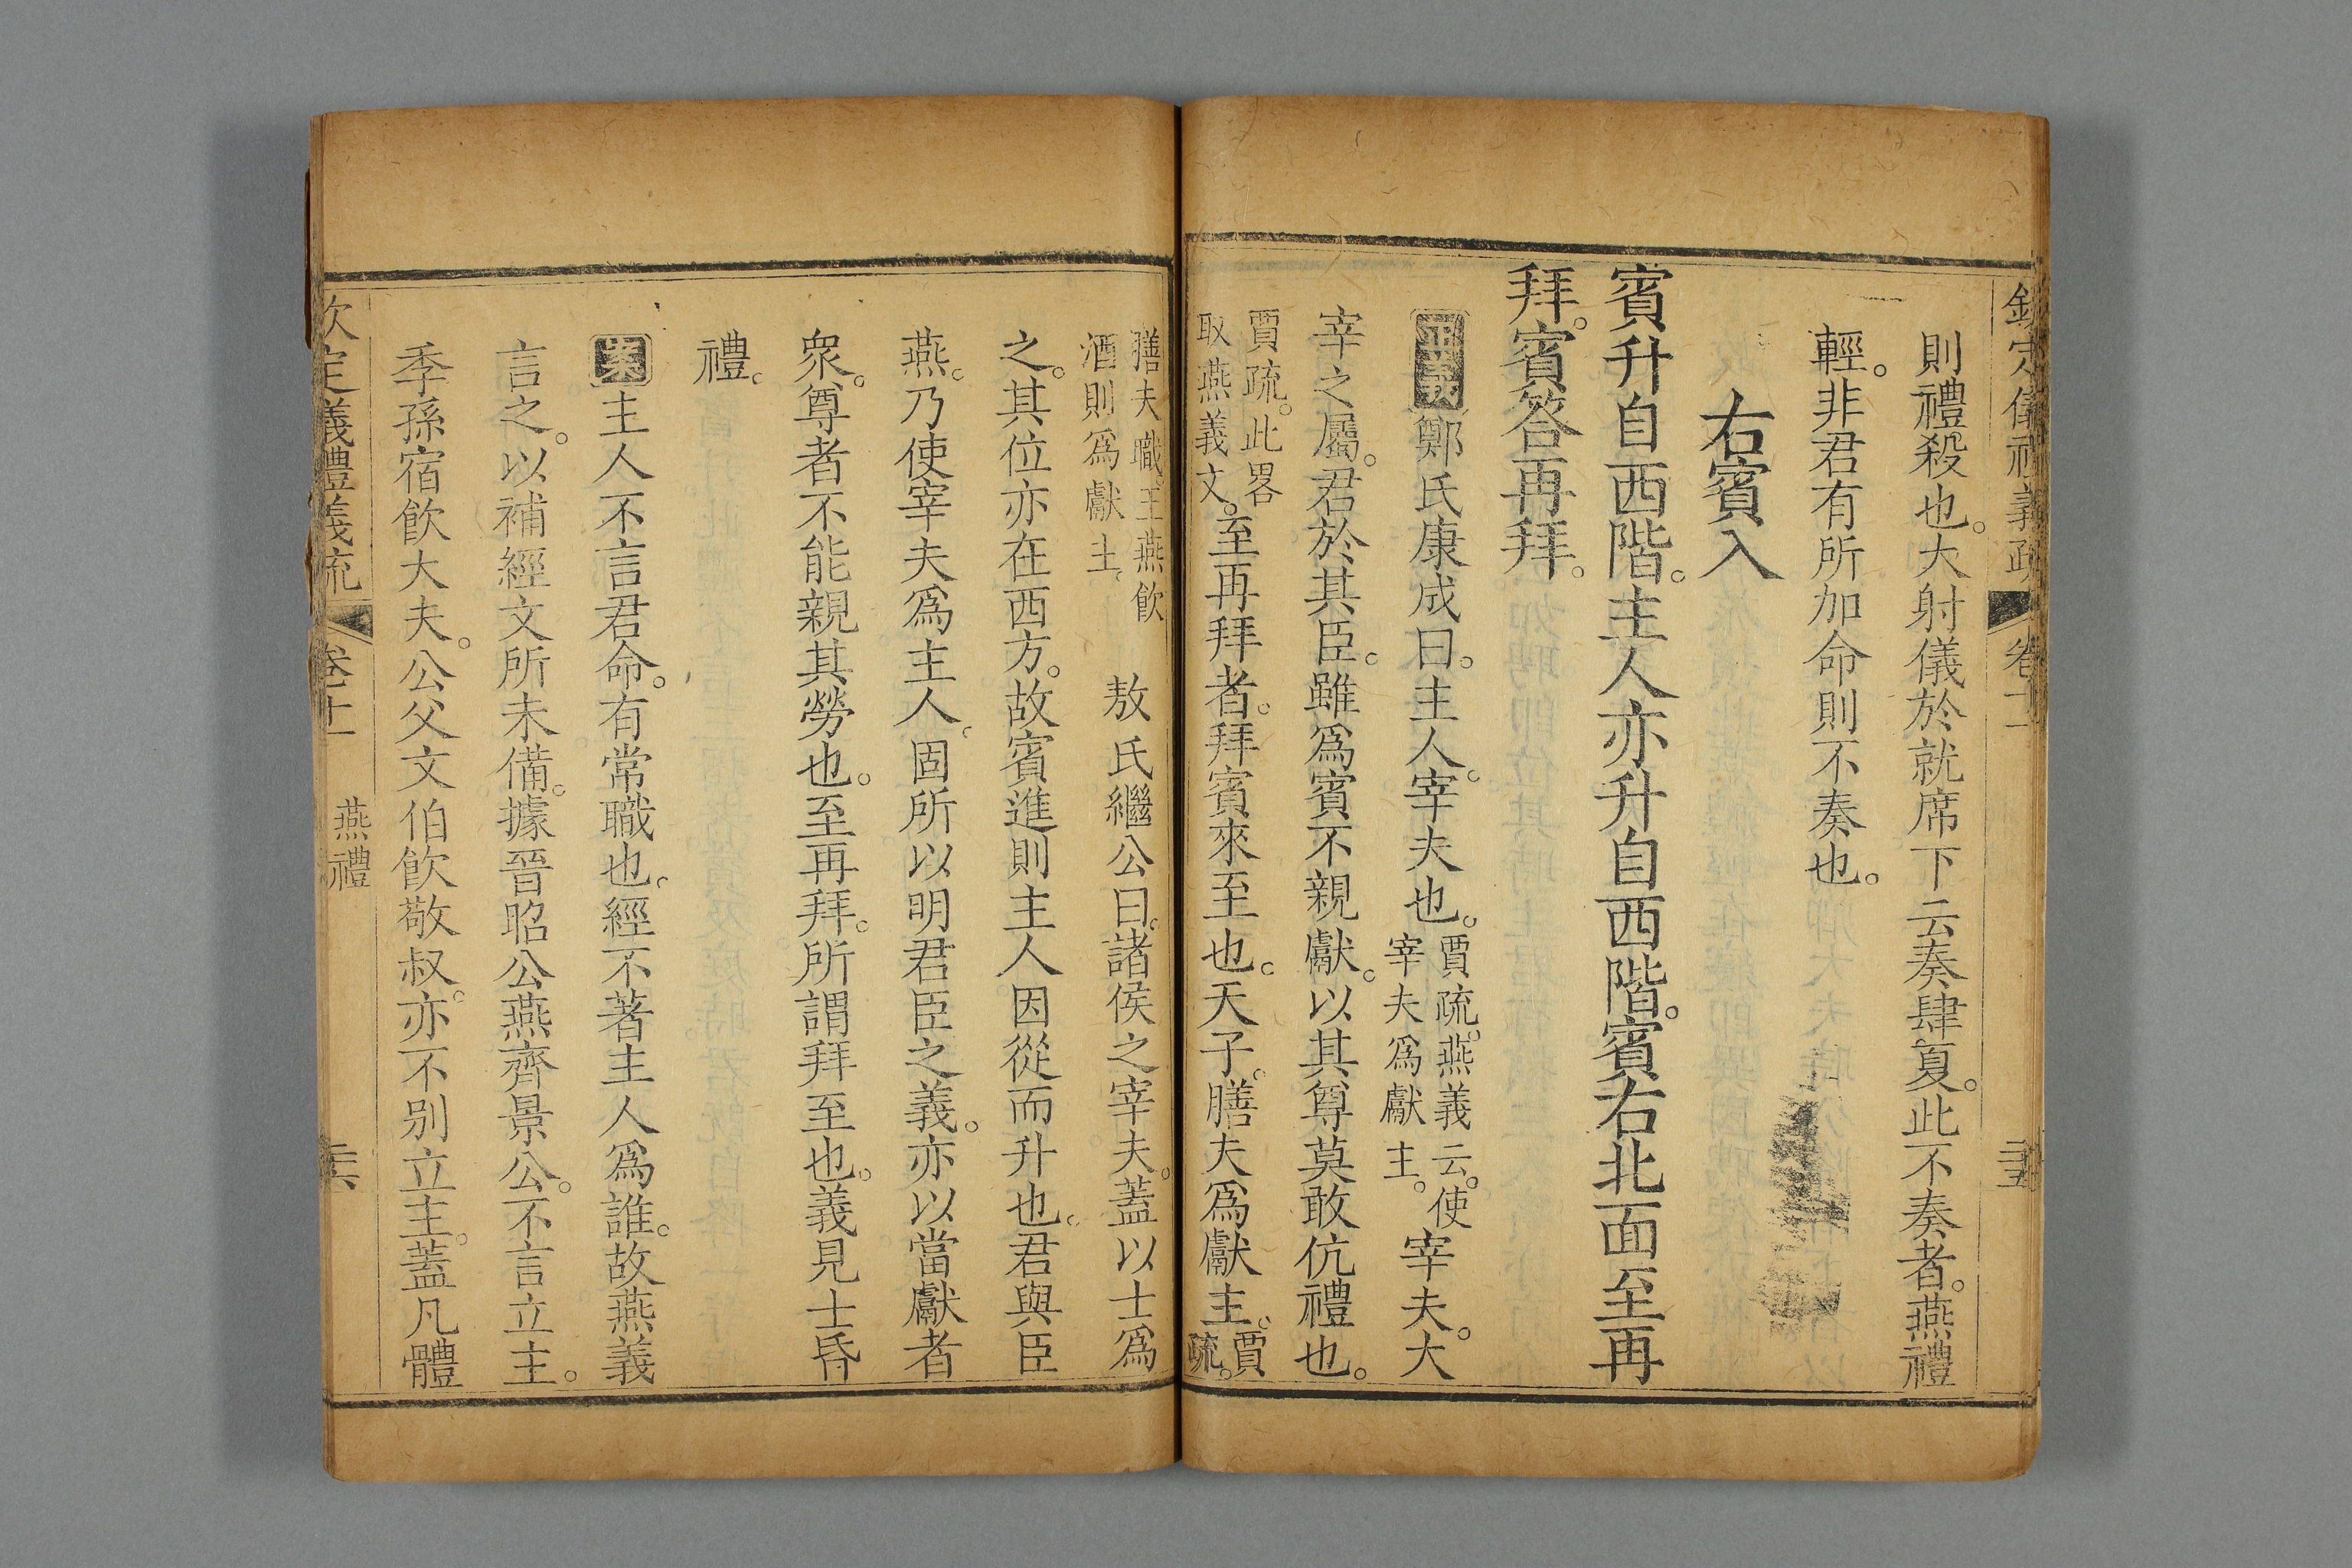 欽定儀禮義疏 卷十一 二十五
則禮殺也。大射儀於就席下云奏肆夏。此不奏者。燕禮
輕。非君有所加命則不奏也。
右賓入
賓升自西階。主人亦升自西階。賓右北面至再
拜。賓答再拜。
正義鄭氏康成曰。主人。宰夫也。賈疏。燕義云。使宰夫爲獻主。宰夫。大
宰之屬。君於其臣。雖爲賓不親獻。以其尊莫敢伉禮也。
賈疏。此畧取燕義文。至再拜者。拜賓來至也。天子。膳夫爲獻主。賈疏。
膳夫職。王燕飲酒則爲獻主。 敖氏繼公曰。諸侯之宰夫。蓋以士爲
之。其位亦在西方。故賓進則主人因從而升也。君與臣
燕。乃使宰夫爲主人。固所以明君臣之義。亦以當獻者
衆。尊者不能親其勞也。至再拜。所謂拜至也。義見士昏
禮。
案主人不言君命。有常職也。經不著主人爲誰。故燕義
言之。以補經文所未備。據晉昭公燕齊景公。不言立主。
季孫宿飲大夫。公父文伯飲敬叔。亦不别立主。蓋凡體
欽定儀禮義疏 卷十一 燕禮 二十六